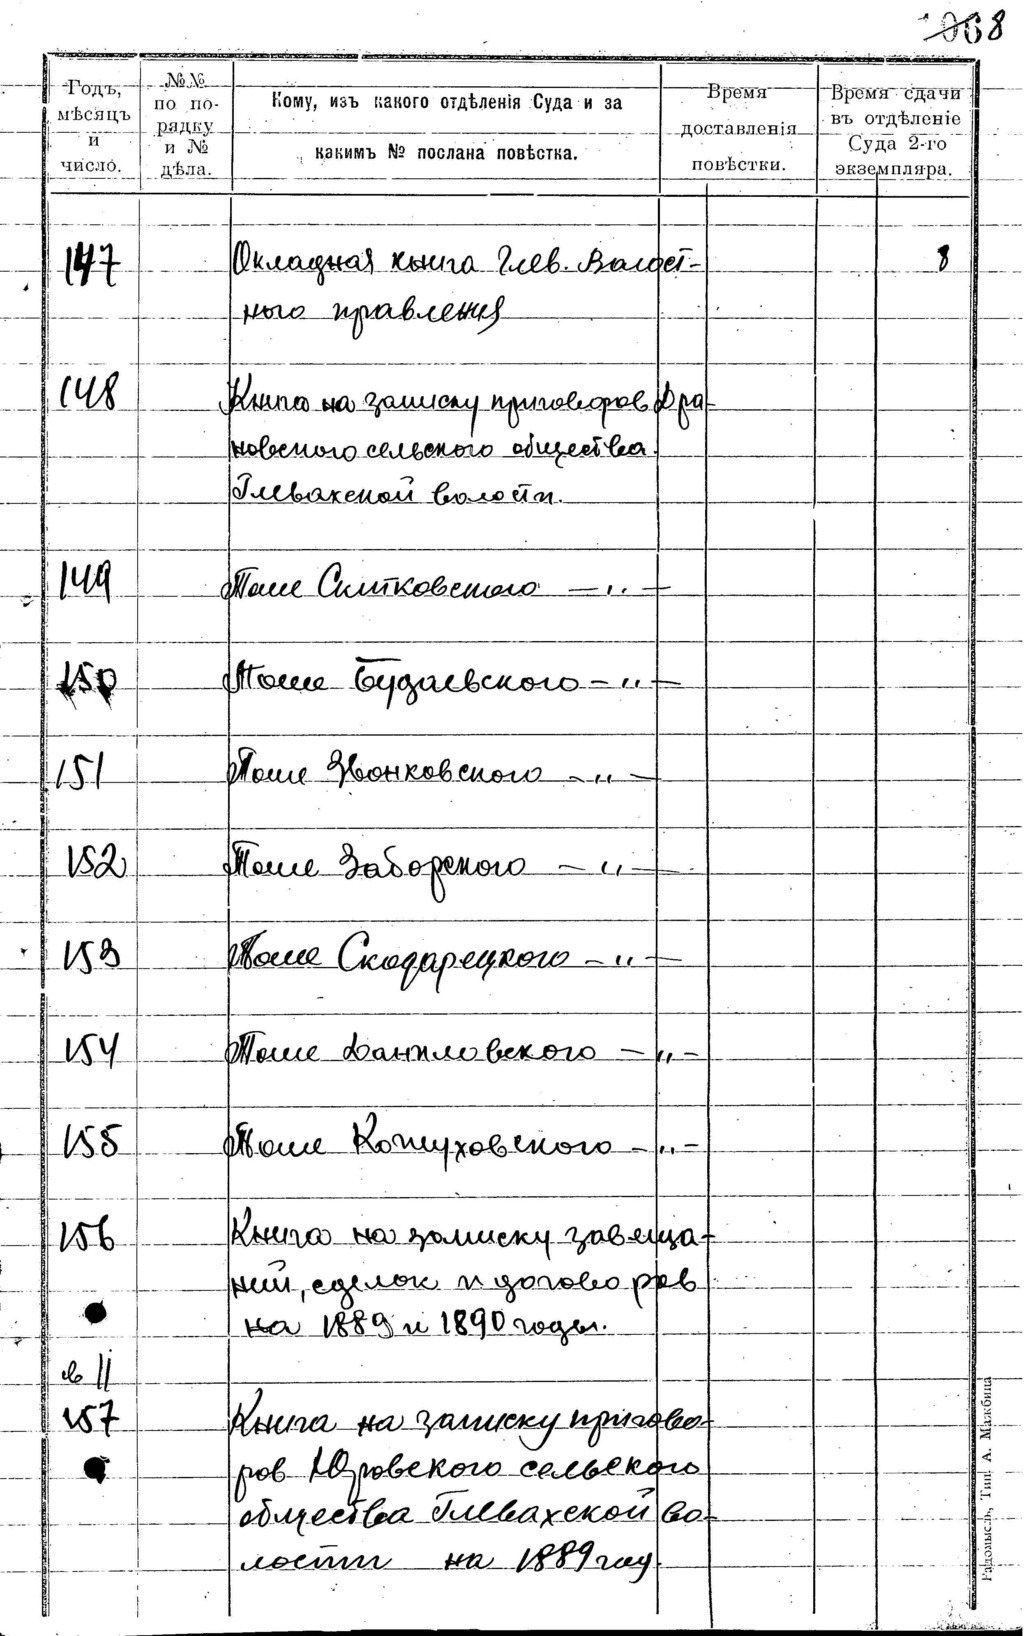 8
Годъ,
мѣсяцъ
и
число.
№№
по по-
рядку
и №
дѣла.
Кому, изъ какого отдѣленія Суда и за
какимъ № послана повѣстка.
Время
доставленія
повѣстки.
Время сдачи
въ отдѣленіе
Суда 2-го
экземпляра.
147 Окладная книга Глев. Волост- 8
ного правления
148 Книга на записку приговоров Дра-
новского сельского общества
Глевахской волости.
149 Тоже Ситковского — „ —
150 Тоже Будаевского — „ —
151 Тоже Звонковского — „ —
152 Тоже Заборского — „ —
153 Тоже Скодарецкого — „ —
154 Тоже Даниловского — „ —
155 Тоже Кожуховского — „ —
156 Книга на записку завеща-
ний, сделок и договоров
на 1889 и 1890 годы.
11
157 Книга на записку пригово-
ров Юровского сельского
общества Глевахской во-
лости на 1889 год.
Радомысль, Тип. А. Мажбица